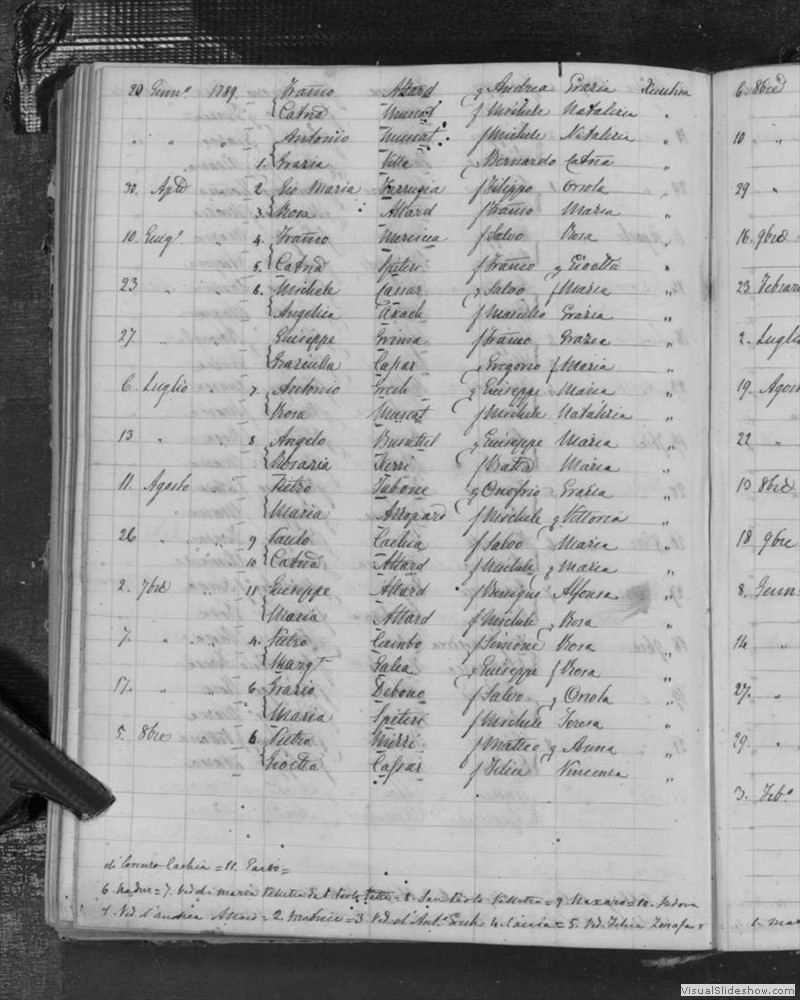 20 Genn.o 1789. Franco Attard q Andrea Grazia Xeuchia
Catna Muscat f Michele Natalizia "
" " " Antonio Muscat f Michele Natalizia "
1. Grazia Vella Bernardo Catna "
30. Aple 2. Gio Maria Farrugia f Filippo Orsola "
3. Rosa Attard f Franco Maria "
10. Giug.o 4. Franco Mercieca f Salvo Rosa "
5. Catna Spiteri f Franco q Gioetta "
23 " " 6. Michele Cassar q Salvo f Maria "
Angelica Axach f Marcello Grazia "
27. " Giuseppe Grima f Franco Grazia "
Graziulla Cassar q Gregorio f Maria "
6. Luglio 7. Antonio Grech q Giuseppe Maria "
Rosa Muscat f Michele Natalizia "
13 " 8 Angelo Busuttil q Giuseppe Maria "
Rosaria Xerri f Batta Maria "
11. Agosto Pietro Tabone q Onofrio Grazia "
Maria Azzopard f Michele q Vittoria "
26 " " 9 Paulo Cachia f Salvo Maria "
10 Catna Attard q Michele q Maria "
2. 7bre " 11 Giuseppe Attard f Benigno Alfonsa "
Maria Attard f Michele q Rosa "
7. " " 4. Pietro Cumbo f Simone Rosa "
Marg.ta Galea q Giuseppe f Rosa "
17. " 6 Grazio Debono f Salvo q Orsola "
Maria Spiteri f Michele Teresa "
5. 8bre 6. Pietro Mizzi f Matteo q Anna "
Gioetta Cassar f Felice Vincenza "
di Lorenzo Cachia = 11. Garbo =
6. Nadur = 7. Ved di Maria = 8. San Paolo = 9 Naxaro = 10.
1. Ved. d'Andrea Attard = 2. = 3. Ved. d'Ant.o Grech 4. = 5. Ved. Felice
6. 8bre
10 "
29 "
16. 9bre
23 Febraro
2. Luglio
19. Agosto
22 "
10 8bre
18 9bre
8. Genn
14 "
27. "
29. "
3. Feb.o
VisualSlideshow.com